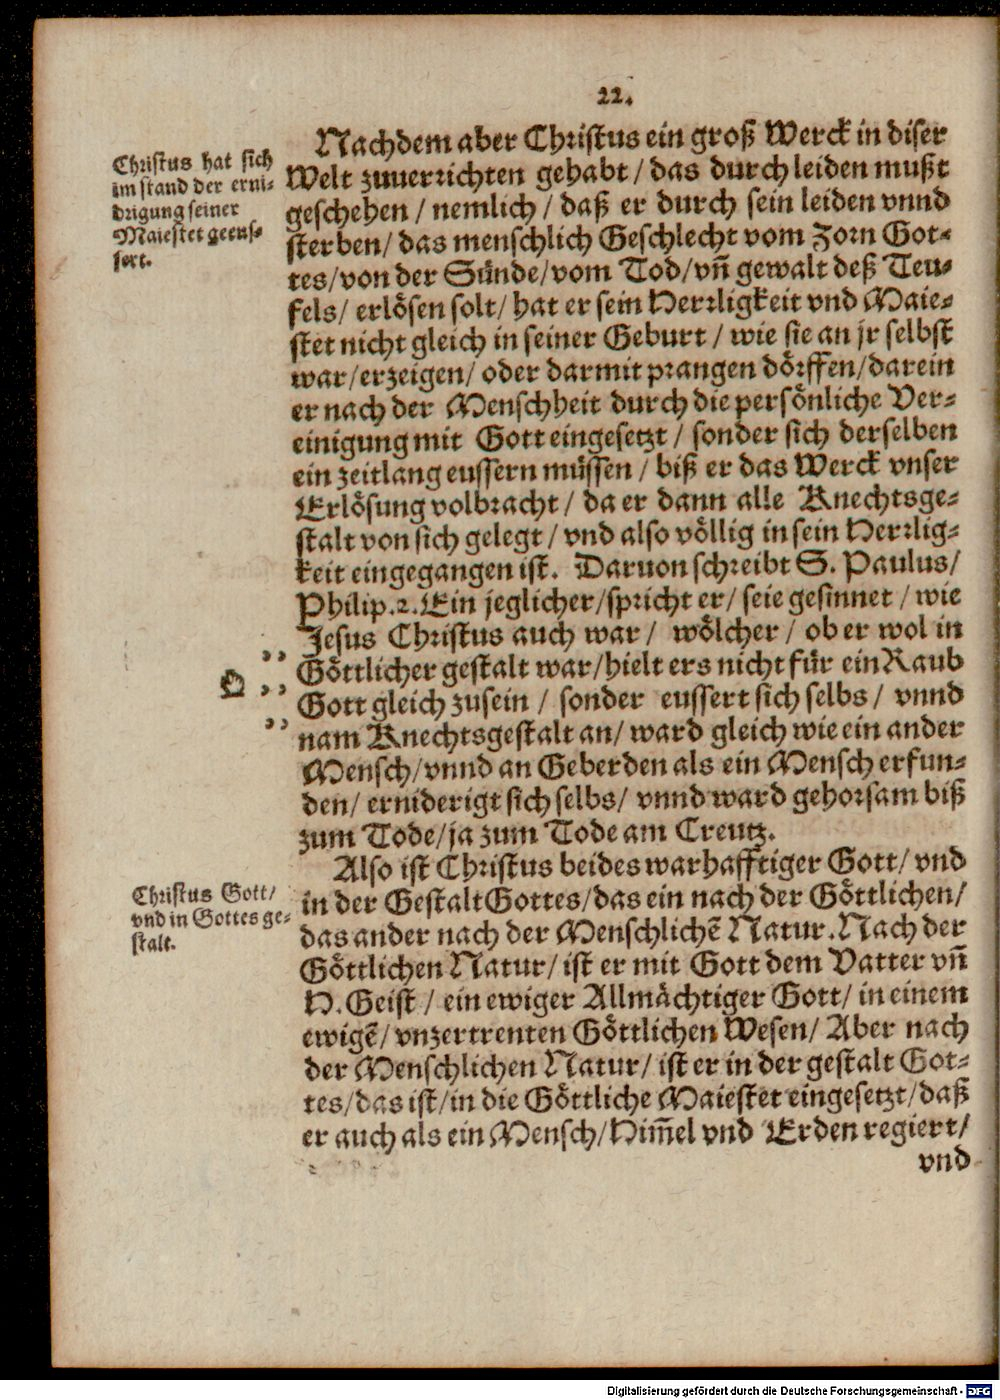 22.
Nachdem aber Christus ein groß Werck in diser
Welt zuuerrichten gehabt / das durch leiden mußt
geschehen / nemlich / daß er durch sein leiden vnnd
sterben / das menschlich Geschlecht vom Zorn Got-
tes / von der Sünde / vom Tod / vñ gewalt deß Teu-
fels / erlösen solt / hat er sein Herrligkeit vnd Maie-
stet nicht gleich in seiner Geburt / wie sie an jr selbst
war / erzeigen / oder darmit prangen dörffen / darein
er nach der Menschheit durch die persönliche Ver-
einigung mit Gott eingesetzt / sonder sich derselben
ein zeitlang eussern müssen / biß er das Werck vnser
Erlösung volbracht / da er dann alle Knechtsge-
stalt von sich gelegt / vnd also völlig in sein Herrlig-
keit eingegangen ist. Daruon schreibt S. Paulus /
Philip. 2. Ein jeglicher / spricht er / seie gesinnet / wie
Jesus Christus auch war / wölcher / ob er wol in
Göttlicher gestalt war / hielt ers nicht für ein Raub
Gott gleich zusein / sonder eussert sich selbs / vnnd
nam Knechtsgestalt an / ward gleich wie ein ander
Mensch / vnnd an Geberden als ein Mensch erfun-
den / erniderigt sich selbs / vnnd ward gehorsam biß
zum Tode / ja zum Tode am Creutz.
Also ist Christus beides warhafftiger Gott / vnd
in der Gestalt Gottes / das ein nach der Göttlichen /
das ander nach der Menschlichẽ Natur. Nach der
Göttlichen Natur / ist er mit Gott dem Vatter vñ
H. Geist / ein ewiger Allmächtiger Gott / in einem
ewigẽ / vnzertrenten Göttlichen Wesen / Aber nach
der Menschlichen Natur / ist er in der gestalt Got-
tes / das ist / in die Göttliche Maiestet eingesetzt / daß
er auch als ein Mensch / Him̃el vnd Erden regiert /
vnd
Christus hat sich
im stand der erni-
drigung seiner
Maiestet geeus-
sert.
Christus Gott /
vnd in Gottes ge-
stalt.
Digitalisierung gefördert durch die Deutsche Forschungsgemeinschaft - DFG